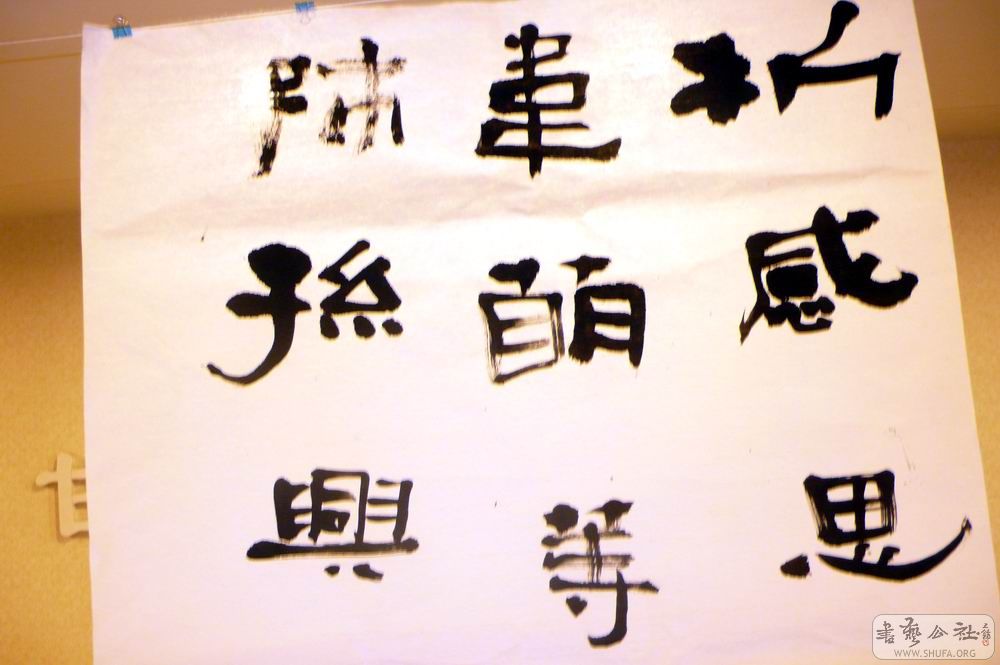 析感思
韋萌等
師孫興
書藝公社
WWW.SHUFA.ORG